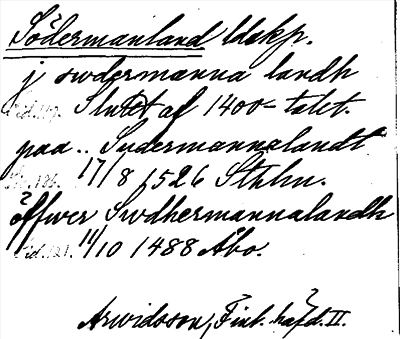 Södermanland ldskp.
j swdermanna landh
Sid. 119. Slutet af 1400-talet.
paa .. Sudermannalandt
Sid. 186. 17/8 1526 Sthlm.
öffwer Swdhermannalandh
Sid. 121. 14/10 1488 Åbo.
Arwidsson, Finl. häfd. II.